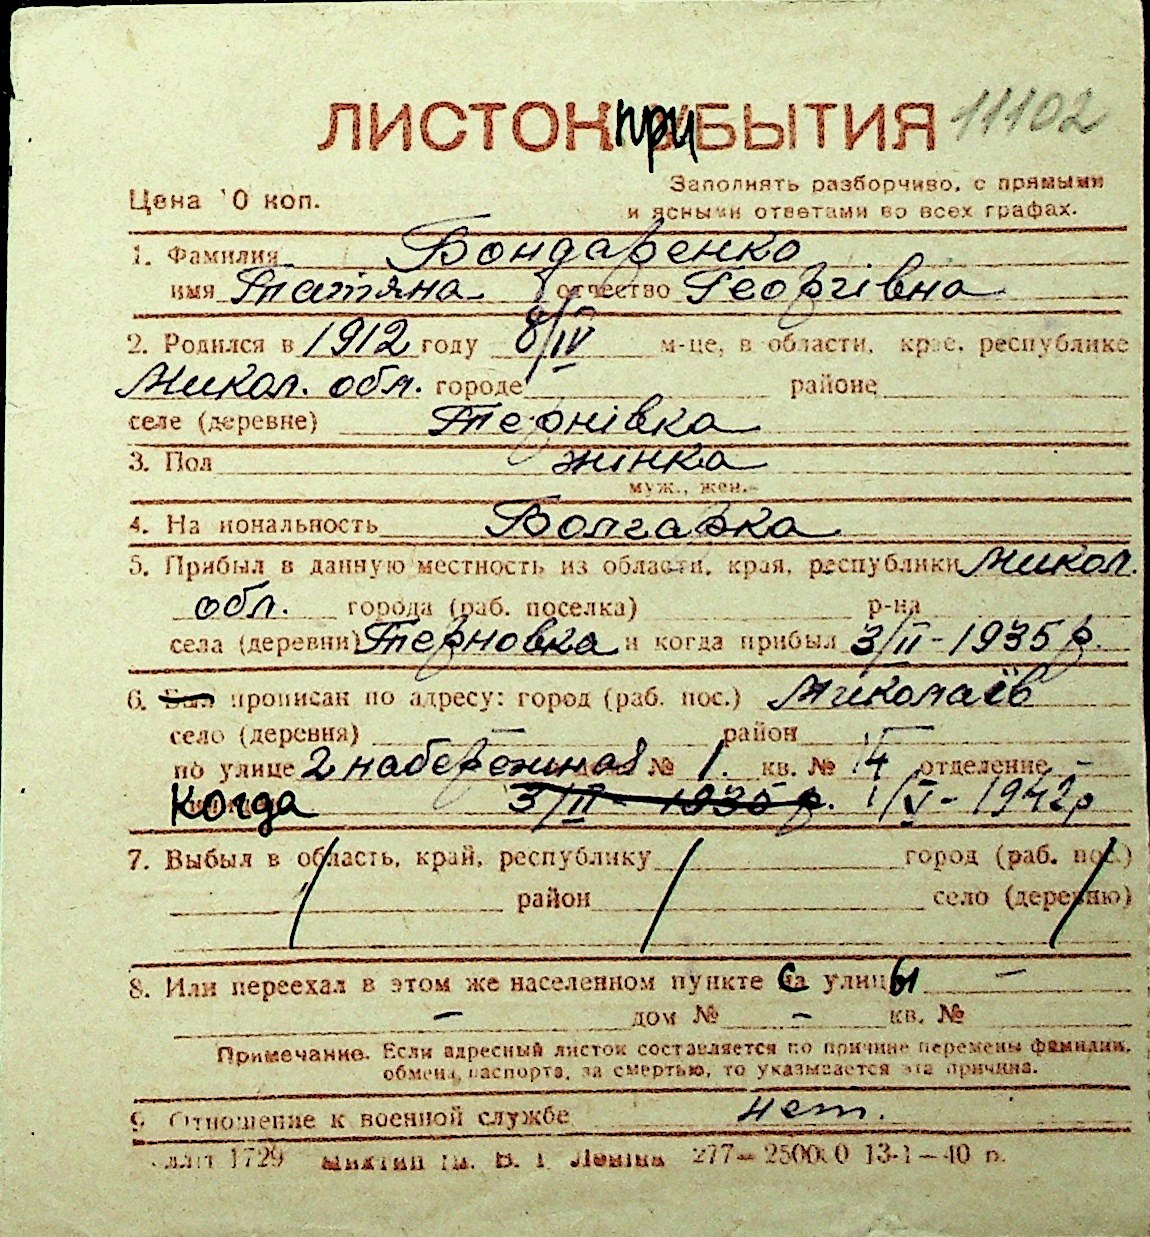 ЛИСТОК ПРИБЫТИЯ 11102
Цена 10 коп.
Заполнять разборчиво, с прямыми
и ясными ответами во всех графах.
1. Фамилия Бондаренко
имя Татяна отчество Георгівна
2. Родился в 1912 году 8/IV м-це, в области, крае, республике
Микол. обл. городе районе
селе (деревне) Тернівка
3. Пол жінка
муж., жен.
4. Национальность Болгарка
5. Прибыл в данную местность из области, края, республики Микол.
обл. города (раб. поселка) р-на
села (деревни) Терновка и когда прибыл 3/II - 1935 р.
6. Был прописан по адресу: город (раб. пос.) Миколаїв
село (деревня) — район
по улице 2 набережная № 1. кв. № 14 отделение –
Когда 3/II - 1935 р. 1/V - 1942 р
7. Выбыл в область, край, республику город (раб. пос.)
район село (деревню)
8. Или переехал в этом же населенном пункте с улицы –
– дом № – кв. №
Примечание. Если адресный листок составляется по причине перемены фамилии,
обмена паспорта, за смертью, то указывается эта причина.
9. Отношение к военной службе нет.
1729 В. Леніна 277 — 13-1—40 р.